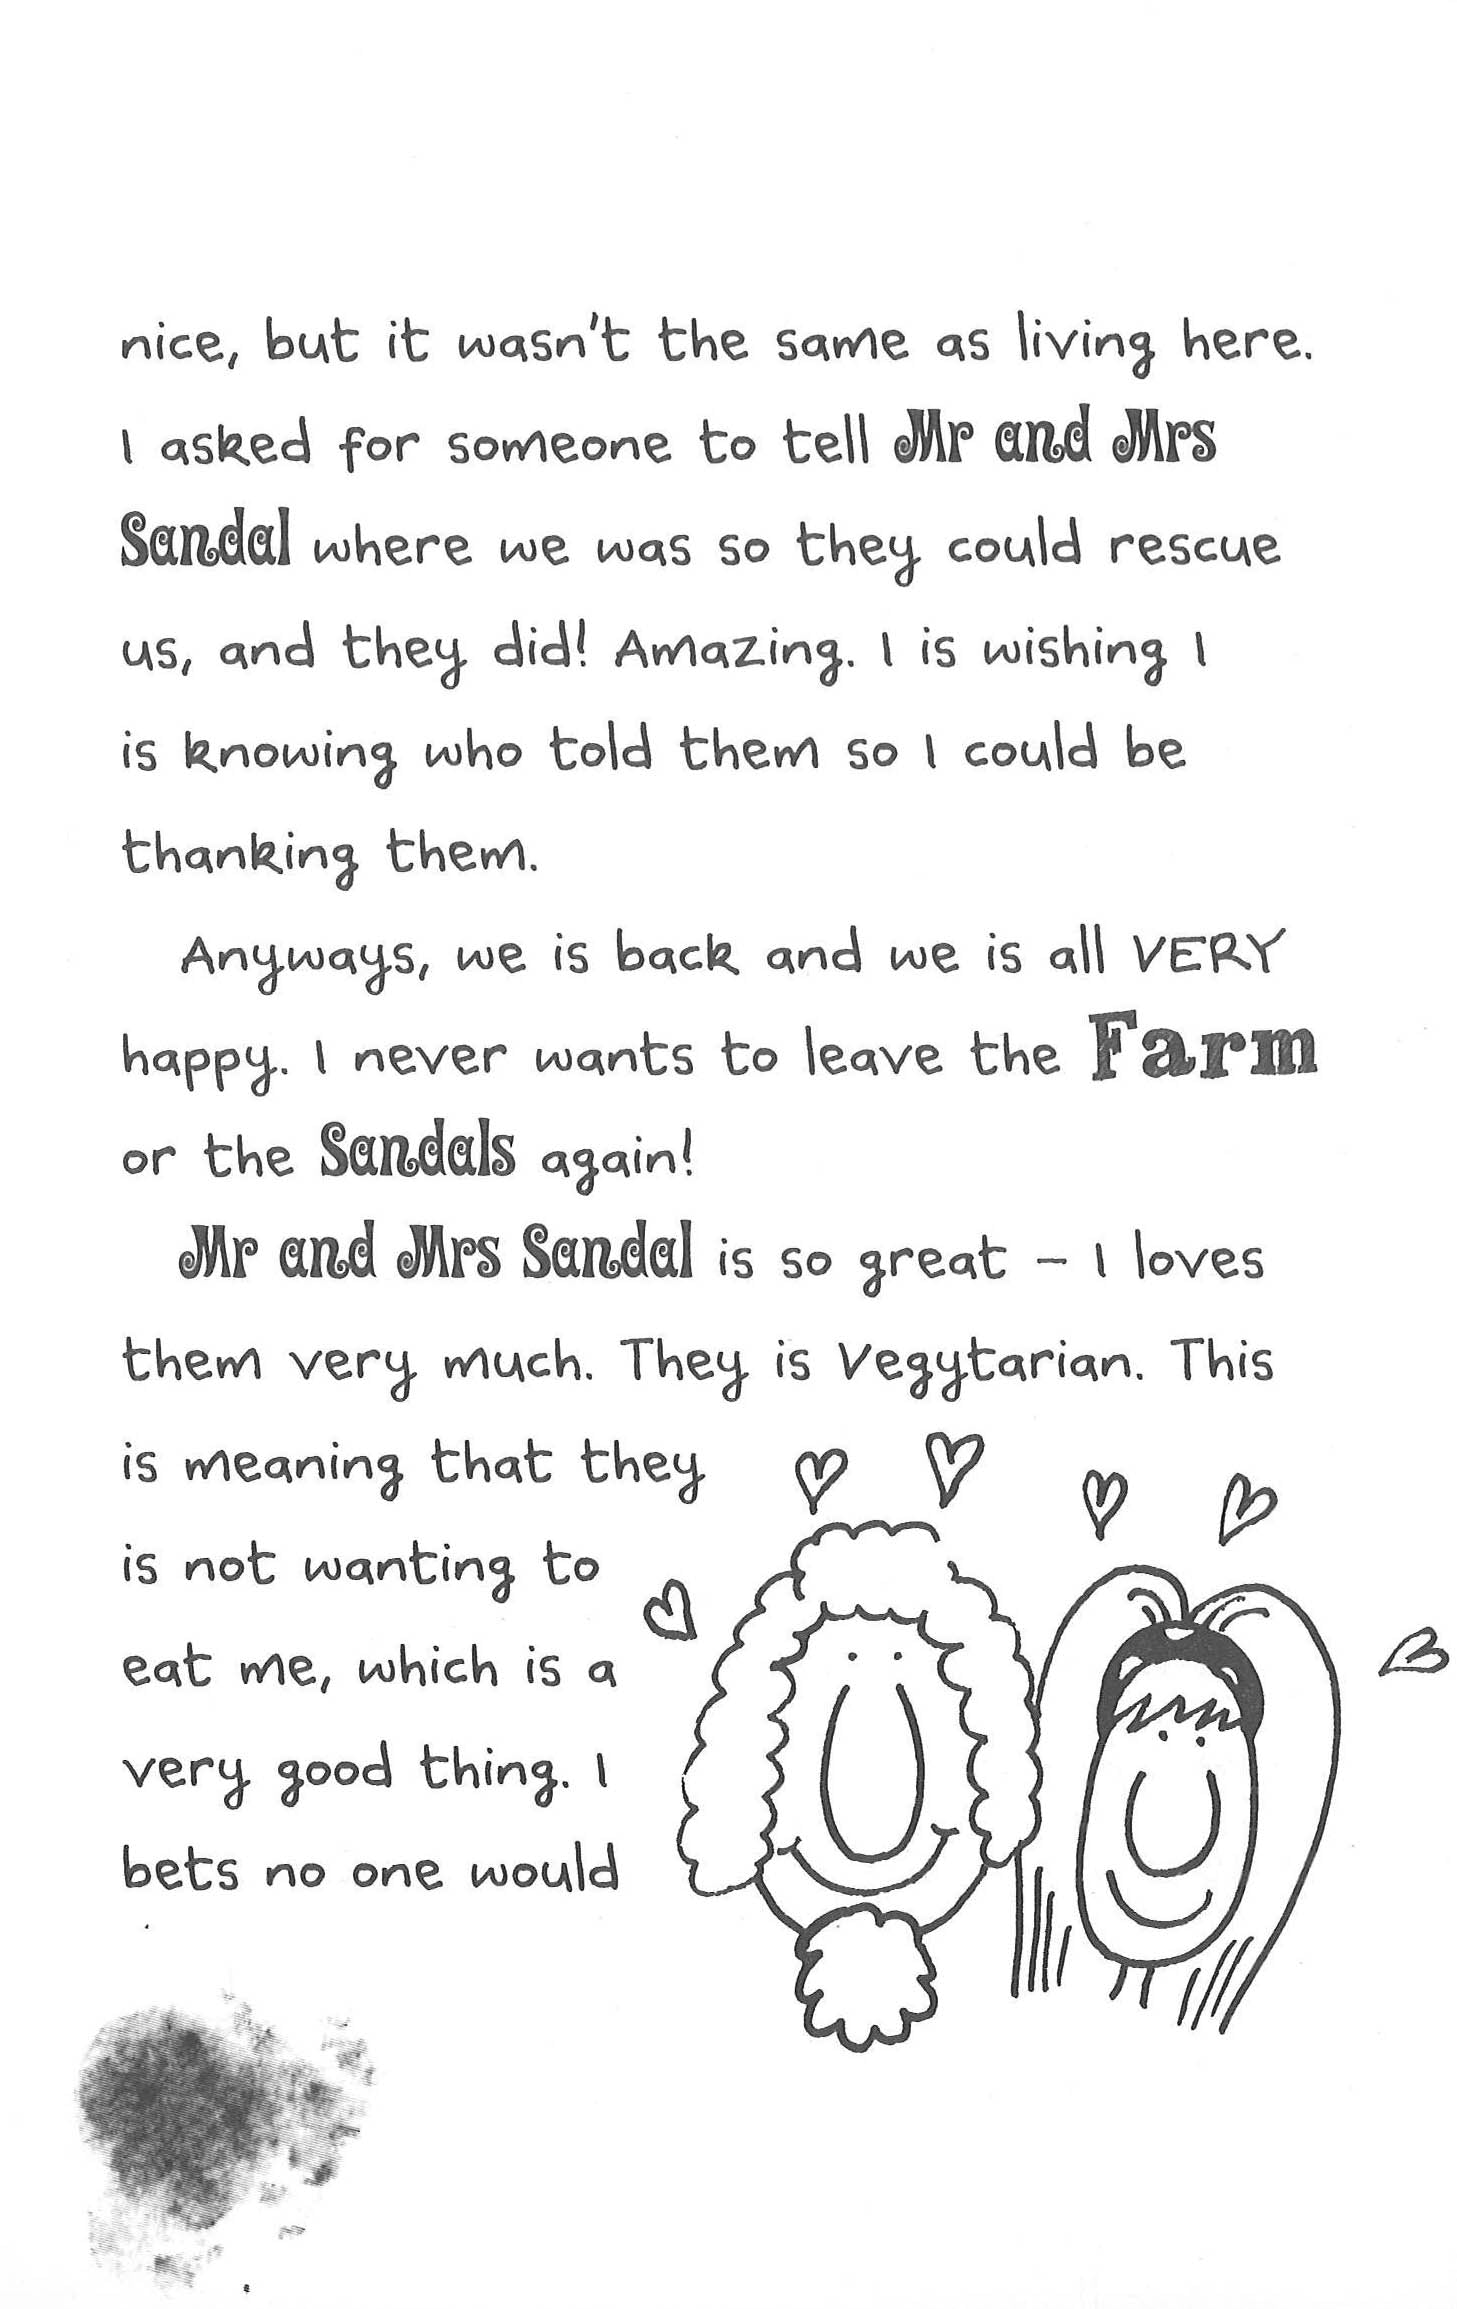 nice, but it wasn't the same as living here.
I asked for someone to tell Mr and Mrs
Sandal where we was so they could rescue
us, and they did! Amazing. I is wishing I
is knowing who told them so I could be
thanking them.
Anyways, we is back and we is all VERY
happy. I never wants to leave the Farm
or the Sandals again!
Mr and Mrs Sandal is so great – I loves
them very much. They is Vegytarian. This
is meaning that they
is not wanting to
eat me, which is a
very good thing. I
bets no one would